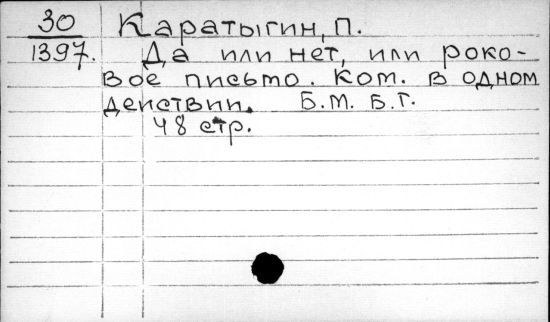 30 Каратыгин, П.
1397. Да или нет, или роко-
вое письмо. Ком. в одном
действии. Б.М. Б.Г.
48 стр.